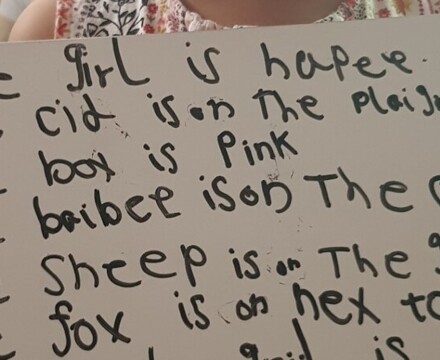 girl is hapee.
cid is on The
box is Pink
baibee is on The
Sheep is on The
fox is on nex to
is